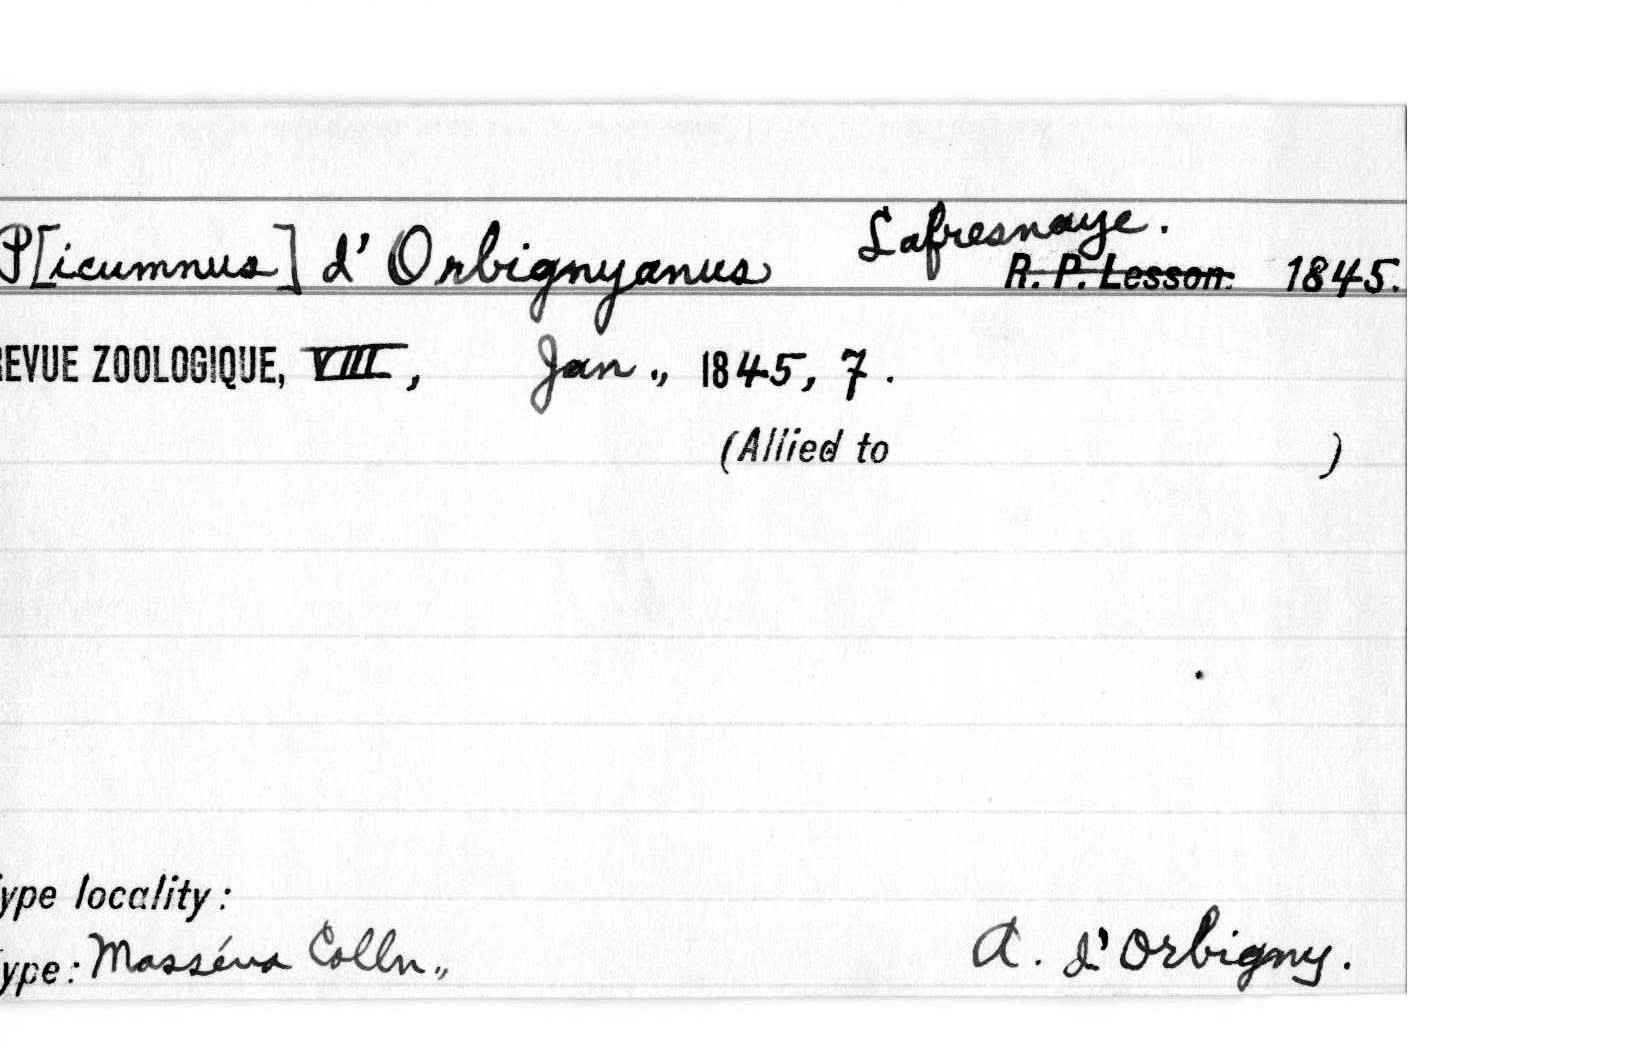 P[icumnus] d'Orbignyanus Lafresnaye.
R. P. Lesson. 1845.
REVUE ZOOLOGIQUE, VIII, Jan., 1845, 7.
(Allied to )
ype locality:
ype: Masséna Colln., A. d'Orbigny.